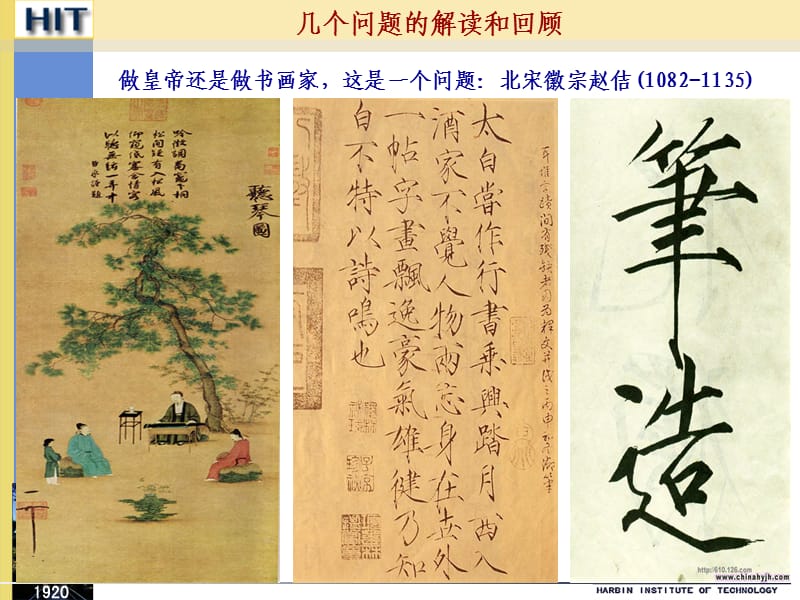 HIT
几个问题的解读和回顾
做皇帝还是做书画家，这是一个问题：北宋徽宗赵佶(1082-1135)
吟徵調商竈下桐
松間疑有入松風
仰窺低審含情客
以聽無絃一弄中
臣京謹題
聽琴圖
太白嘗作行書乘興踏月西入
酒家不覺人物兩忘身在世外
一帖字畫飄逸豪氣雄健乃知
白不特以詩鳴也
筆造
http://610.126.com
www.chinahyjh.com
1920
HARBIN INSTITUTE OF TECHNOLOGY